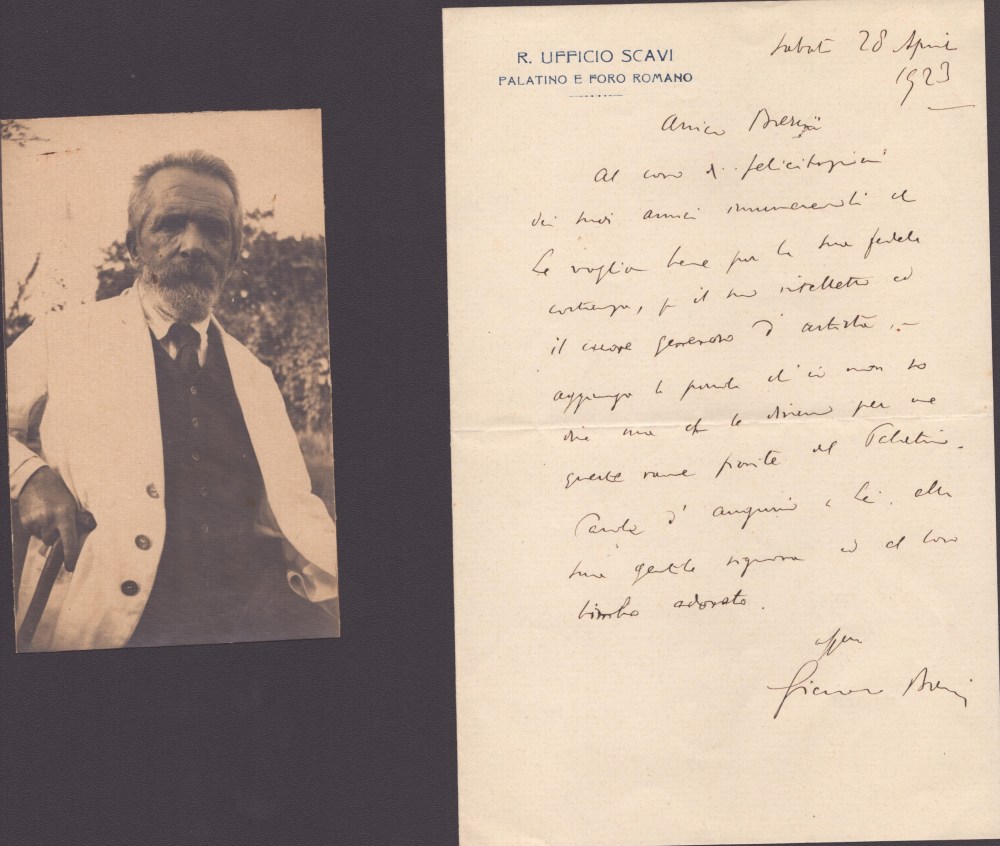 R. UFFICIO SCAVI
PALATINO E FORO ROMANO
Sabato 28 Aprile
1923
Amico
Al coro di felicitazioni
dei suoi amici innumerevoli che
Le voglion bene per la sua fedele
costanza, per il suo intelletto ed
il cuore generoso d'artista,
aggiungo la parola che io non so
dire ma che le diranno per me
queste rame fiorite del Palatino.
Parola d'augurio a Lei, alla
sua gentile signora ed al loro
bimbo adorato.
Giacomo Boni